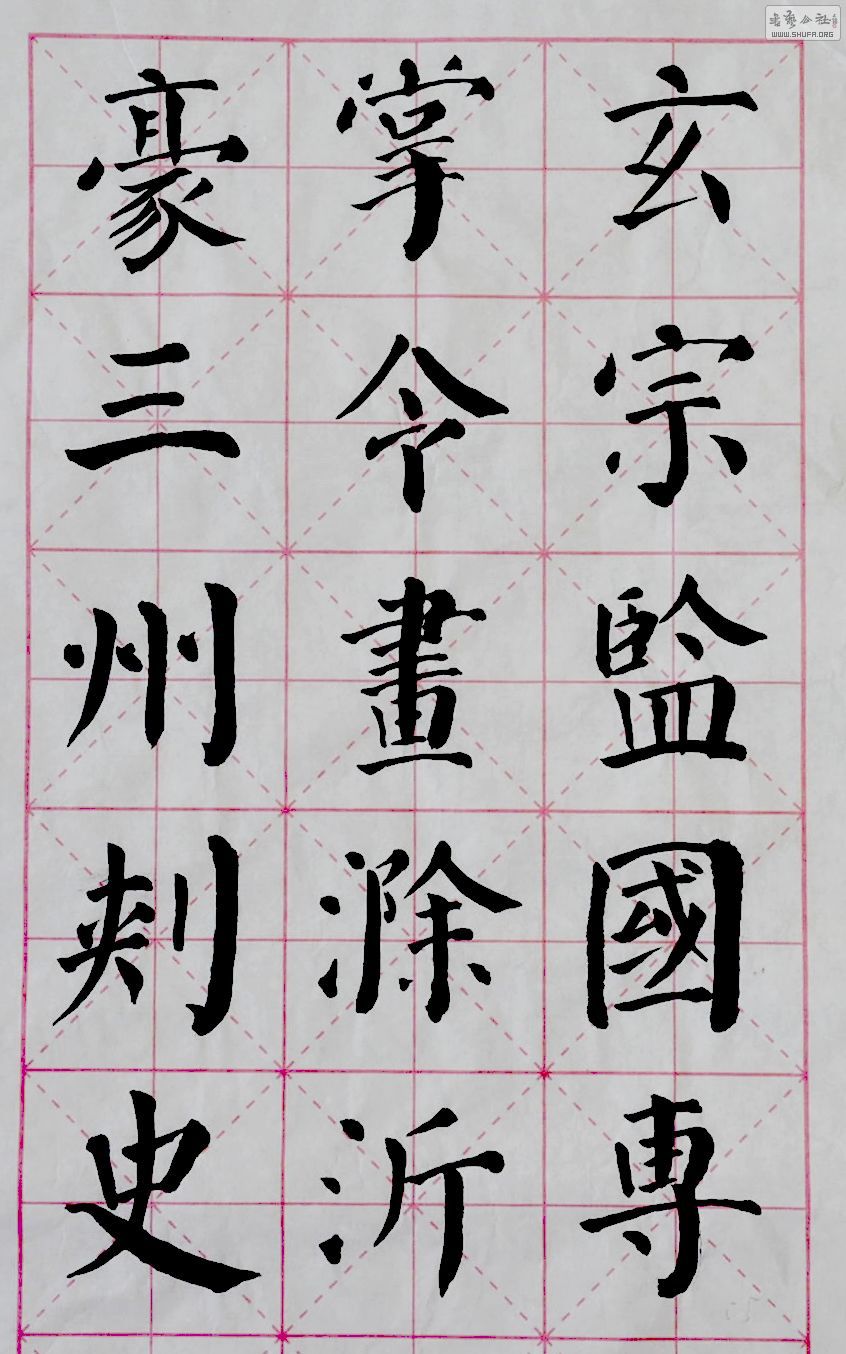 玄宗監國專
掌令畫滁沂
豪三州刺史
WWW.SHUFA.ORG